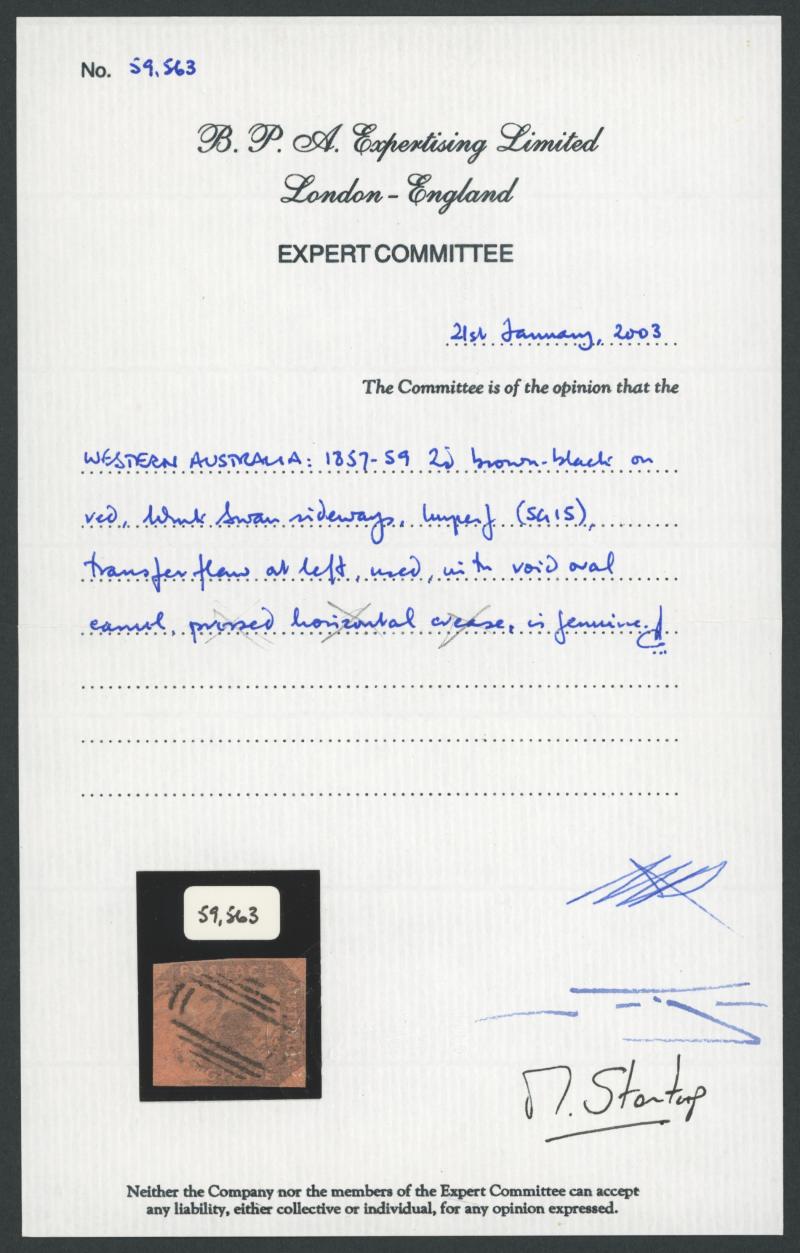 No. 59,563
B. P. A. Expertising Limited
London - England
EXPERT COMMITTEE
21st January, 2003
The Committee is of the opinion that the
WESTERN AUSTRALIA: 1857-59 2d brown-black on
red, Wmk Swan sideways, imperf (SG15),
transfer flaw at left, used, with void oval
cancel, pressed horizontal crease, is genuine.
59,563
POSTAGE
M. Startup
Neither the Company nor the members of the Expert Committee can accept
any liability, either collective or individual, for any opinion expressed.